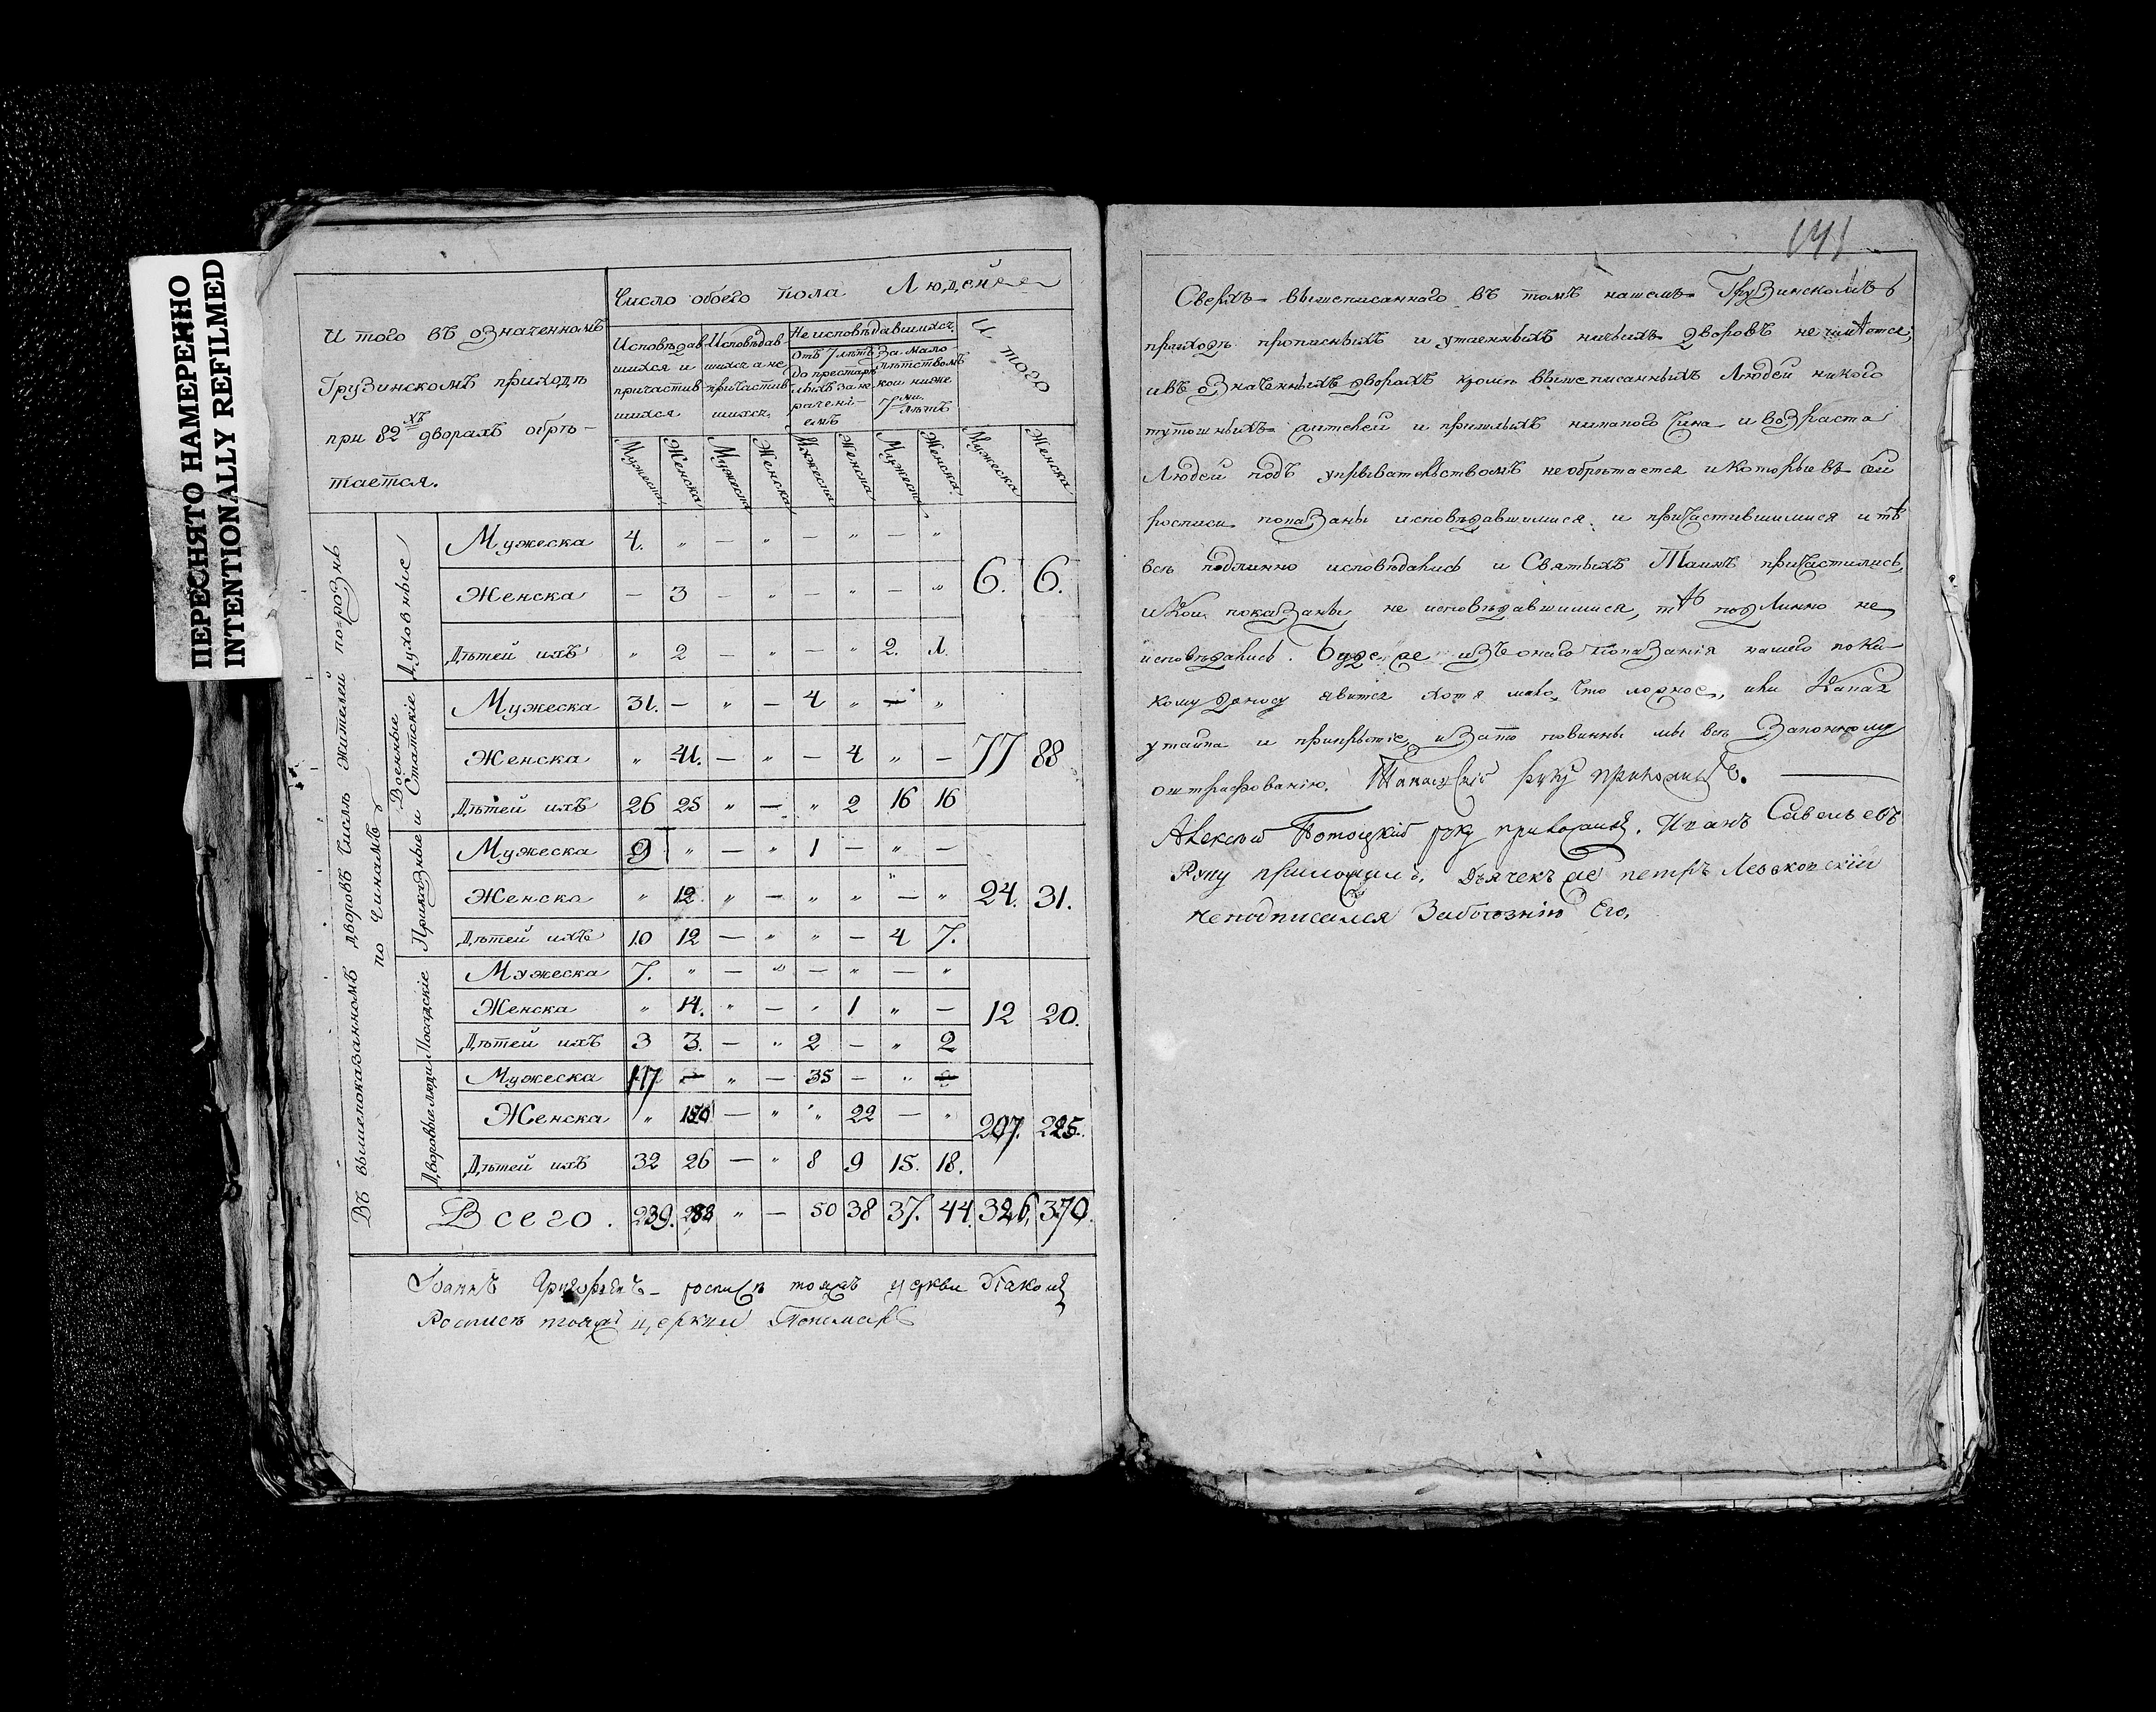 ПЕРЕСНЯТО НАМЕРЕННО
INTENTIONALLY REFILMED
И того въ означенномъ
Грузинскомъ приходѣ
при 82хъ дворахъ обрѣ-
тается.
Число обоего пола Людей
Исповѣдав
шихся и
причастив
шихся
Исповѣдав
шихся а не
причастив
шихся
Не исповѣдавшихся.
Отъ 7 лѣтъ
до престарѣ
лыхъ за не
рачені-
емъ
За мало
лѣтствомъ
кои ниже
7ми лѣтъ
И того
Мужеска Женска Мужеска Женска Мужеска Женска Мужеска Женска Мужеска Женска
Въ вышепоказанномъ дворовъ числѣ жителей по=рознь
по чинамъ
Духовные
Мужеска 4. „ — „ — „ — „
Женска — 3 — „ — „ — „ 6. 6.
Дѣтей ихъ „ 2 — „ — „ 2. 1.
Военные и Статскіе
Мужеска 31. — „ — 4 „ — „
Женска „ 41. — „ — 4 „ — 77 88
Дѣтей ихъ 26 25 „ — „ 2 16 16
Приказные
Мужеска 9 „ — „ 1 — „ —
Женска „ 12. „ — „ „ — „ 24. 31.
Дѣтей ихъ 10 12 — „ „ — 4 7.
Посадскіе
Мужеска 7. „ — „ — „ — „
Женска „ 14. „ — „ 1 „ — 12 20.
Дѣтей ихъ 3 3. — „ 2 — „ 2
Дворовыя люди
Мужеска 117 — „ — 35 — „ —
Женска „ 150 — „ „ 22 — „ 207. 225.
Дѣтей ихъ 32 26 — „ 8 9 15. 18.
Всего. 239. 288 „ — 50 38 37. 44. 326, 370.
Іоаннъ Григорьевъ росписъ тояжъ церкви
Росписъ тояжъ церкви Пономарь
141
Сверхъ вышеписаннаго въ томъ нашемъ Грузинскомъ
приходѣ прописныхъ и утаенныхъ ничьихъ дворовъ не имѣются,
ивъ означенныхъ дворахъ кромѣ вышеписанныхъ Людей никого
тутошныхъ жителей и пришлыхъ никакого чина и возраста
Людей подъ укрывательствомъ необрѣтается и которые въ сей
росписи показаны исповѣдавшимися и причастившимися и тѣ
всѣ подлинно исповѣдались и Святыхъ Таинъ причастились,
и кои показаны не исповѣдавшимися, тѣ подлинно не
исповѣдались. Буде же изъ онаго показанія нашего по ка-
кому доносу явится хотя мало что ложное, или какая
утайка и прикрытіе, и зато повинны мы всѣ законному
оштрафованію. руку приложилъ.
Алексѣй Потоцкій руку приложилъ. Иванъ Савельевъ
Руку приложилъ. Дьячекъ же петръ Левсковскій
неподписался Заболезнію Его.